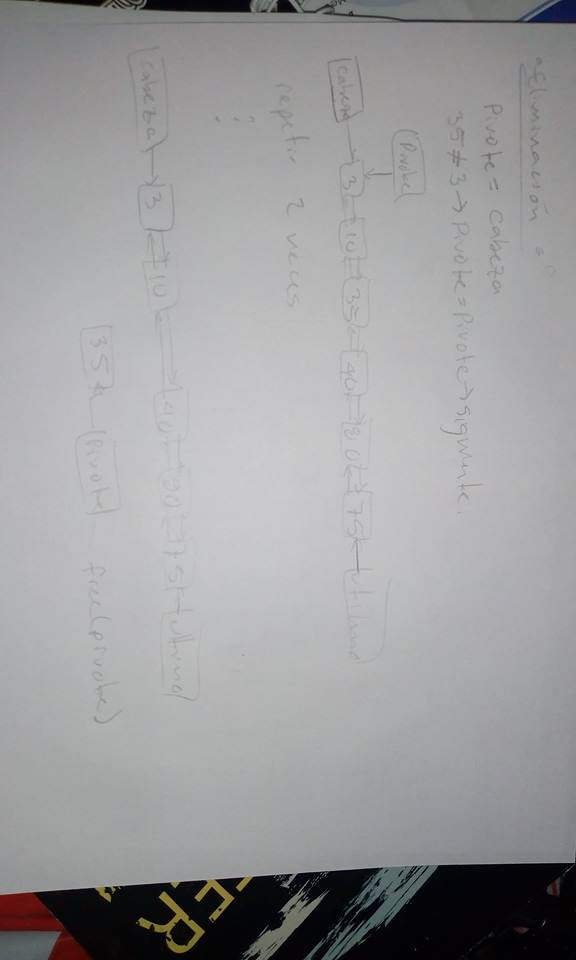 Eliminación:
Pivote = cabeza
35≠3→Pivote=Pivote→siguiente.
Pivote
cabeza → 3 10 35 40 80 75 ultimo
repetir 2 veces
:
cabeza → 3 10 40 75 ultimo
35 Pivote free(pivote)
ER